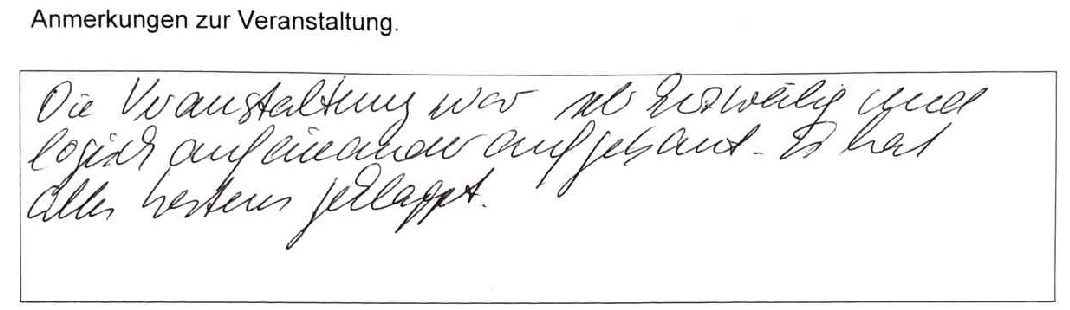 Anmerkungen zur Veranstaltung.
Die Veranstaltung war sehr kurzweilig und
logisch aufeinander aufgebaut. Es hat
alles bestens geklappt.